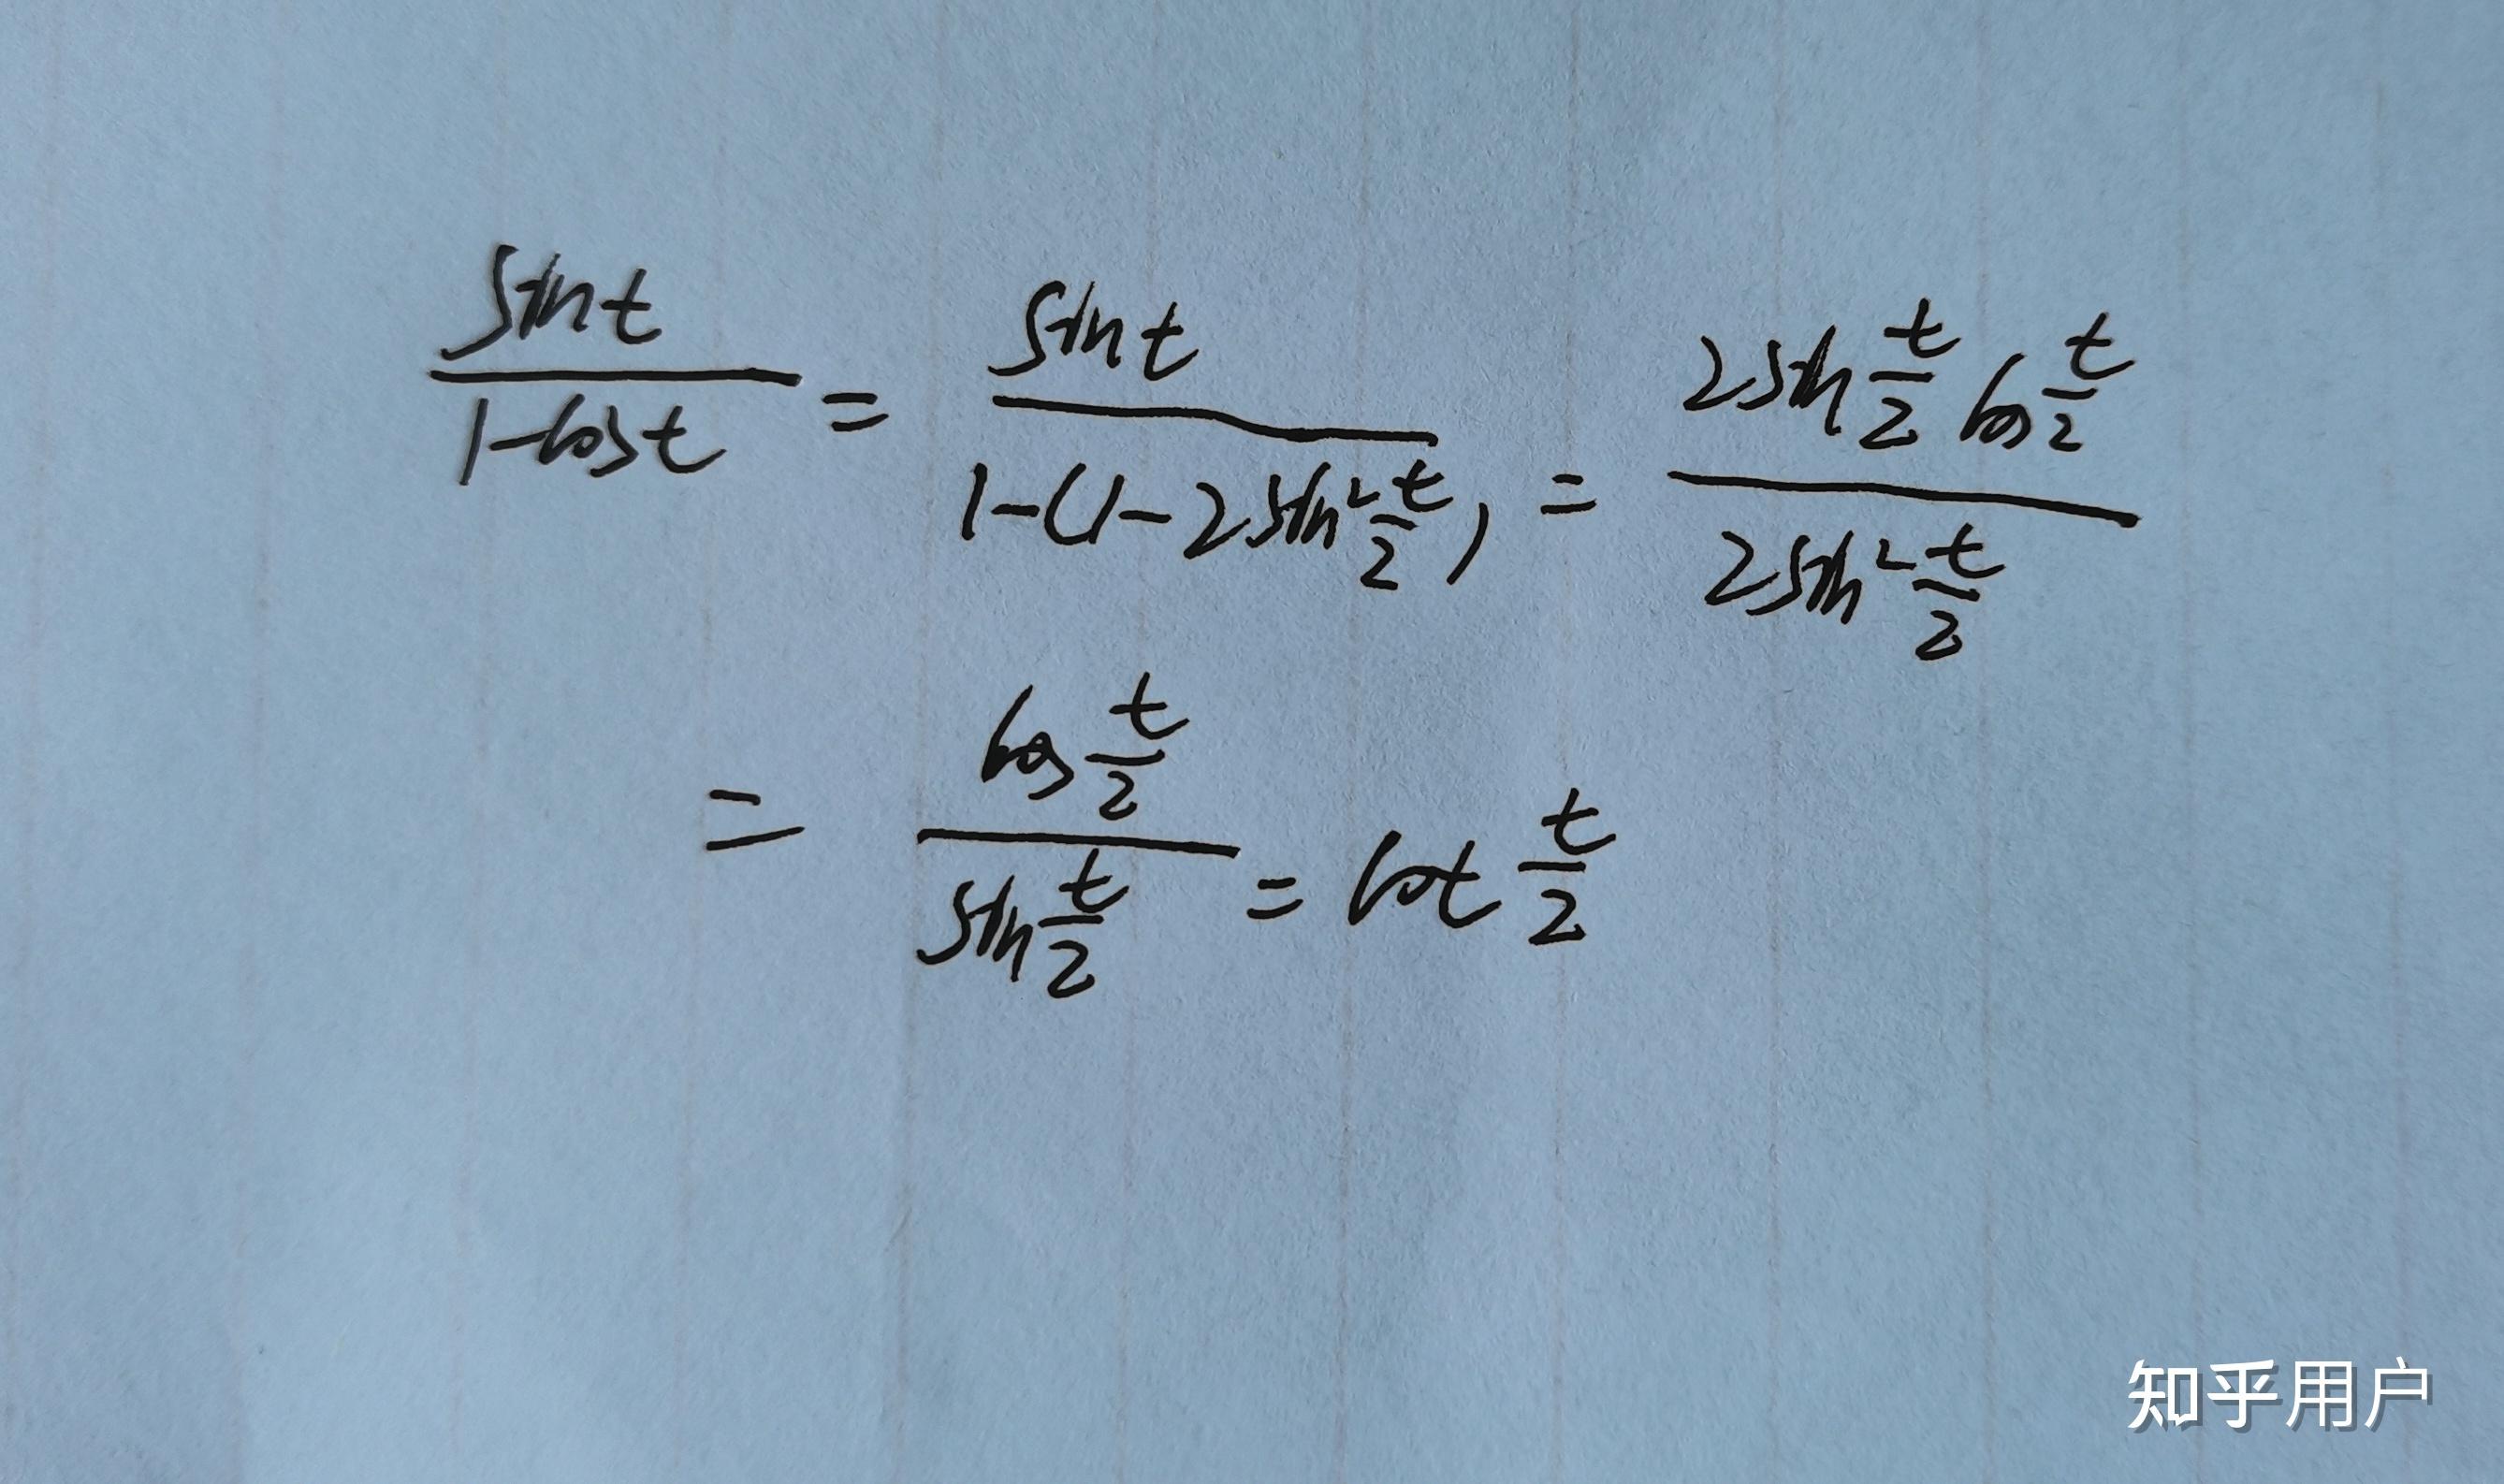 sin t / (1 - cos t) = sin t / (1 - (1 - 2 sin² t/2)) = 2 sin t/2 cos t/2 / (2 sin² t/2)
= cos t/2 / sin t/2 = cot t/2
知乎用户